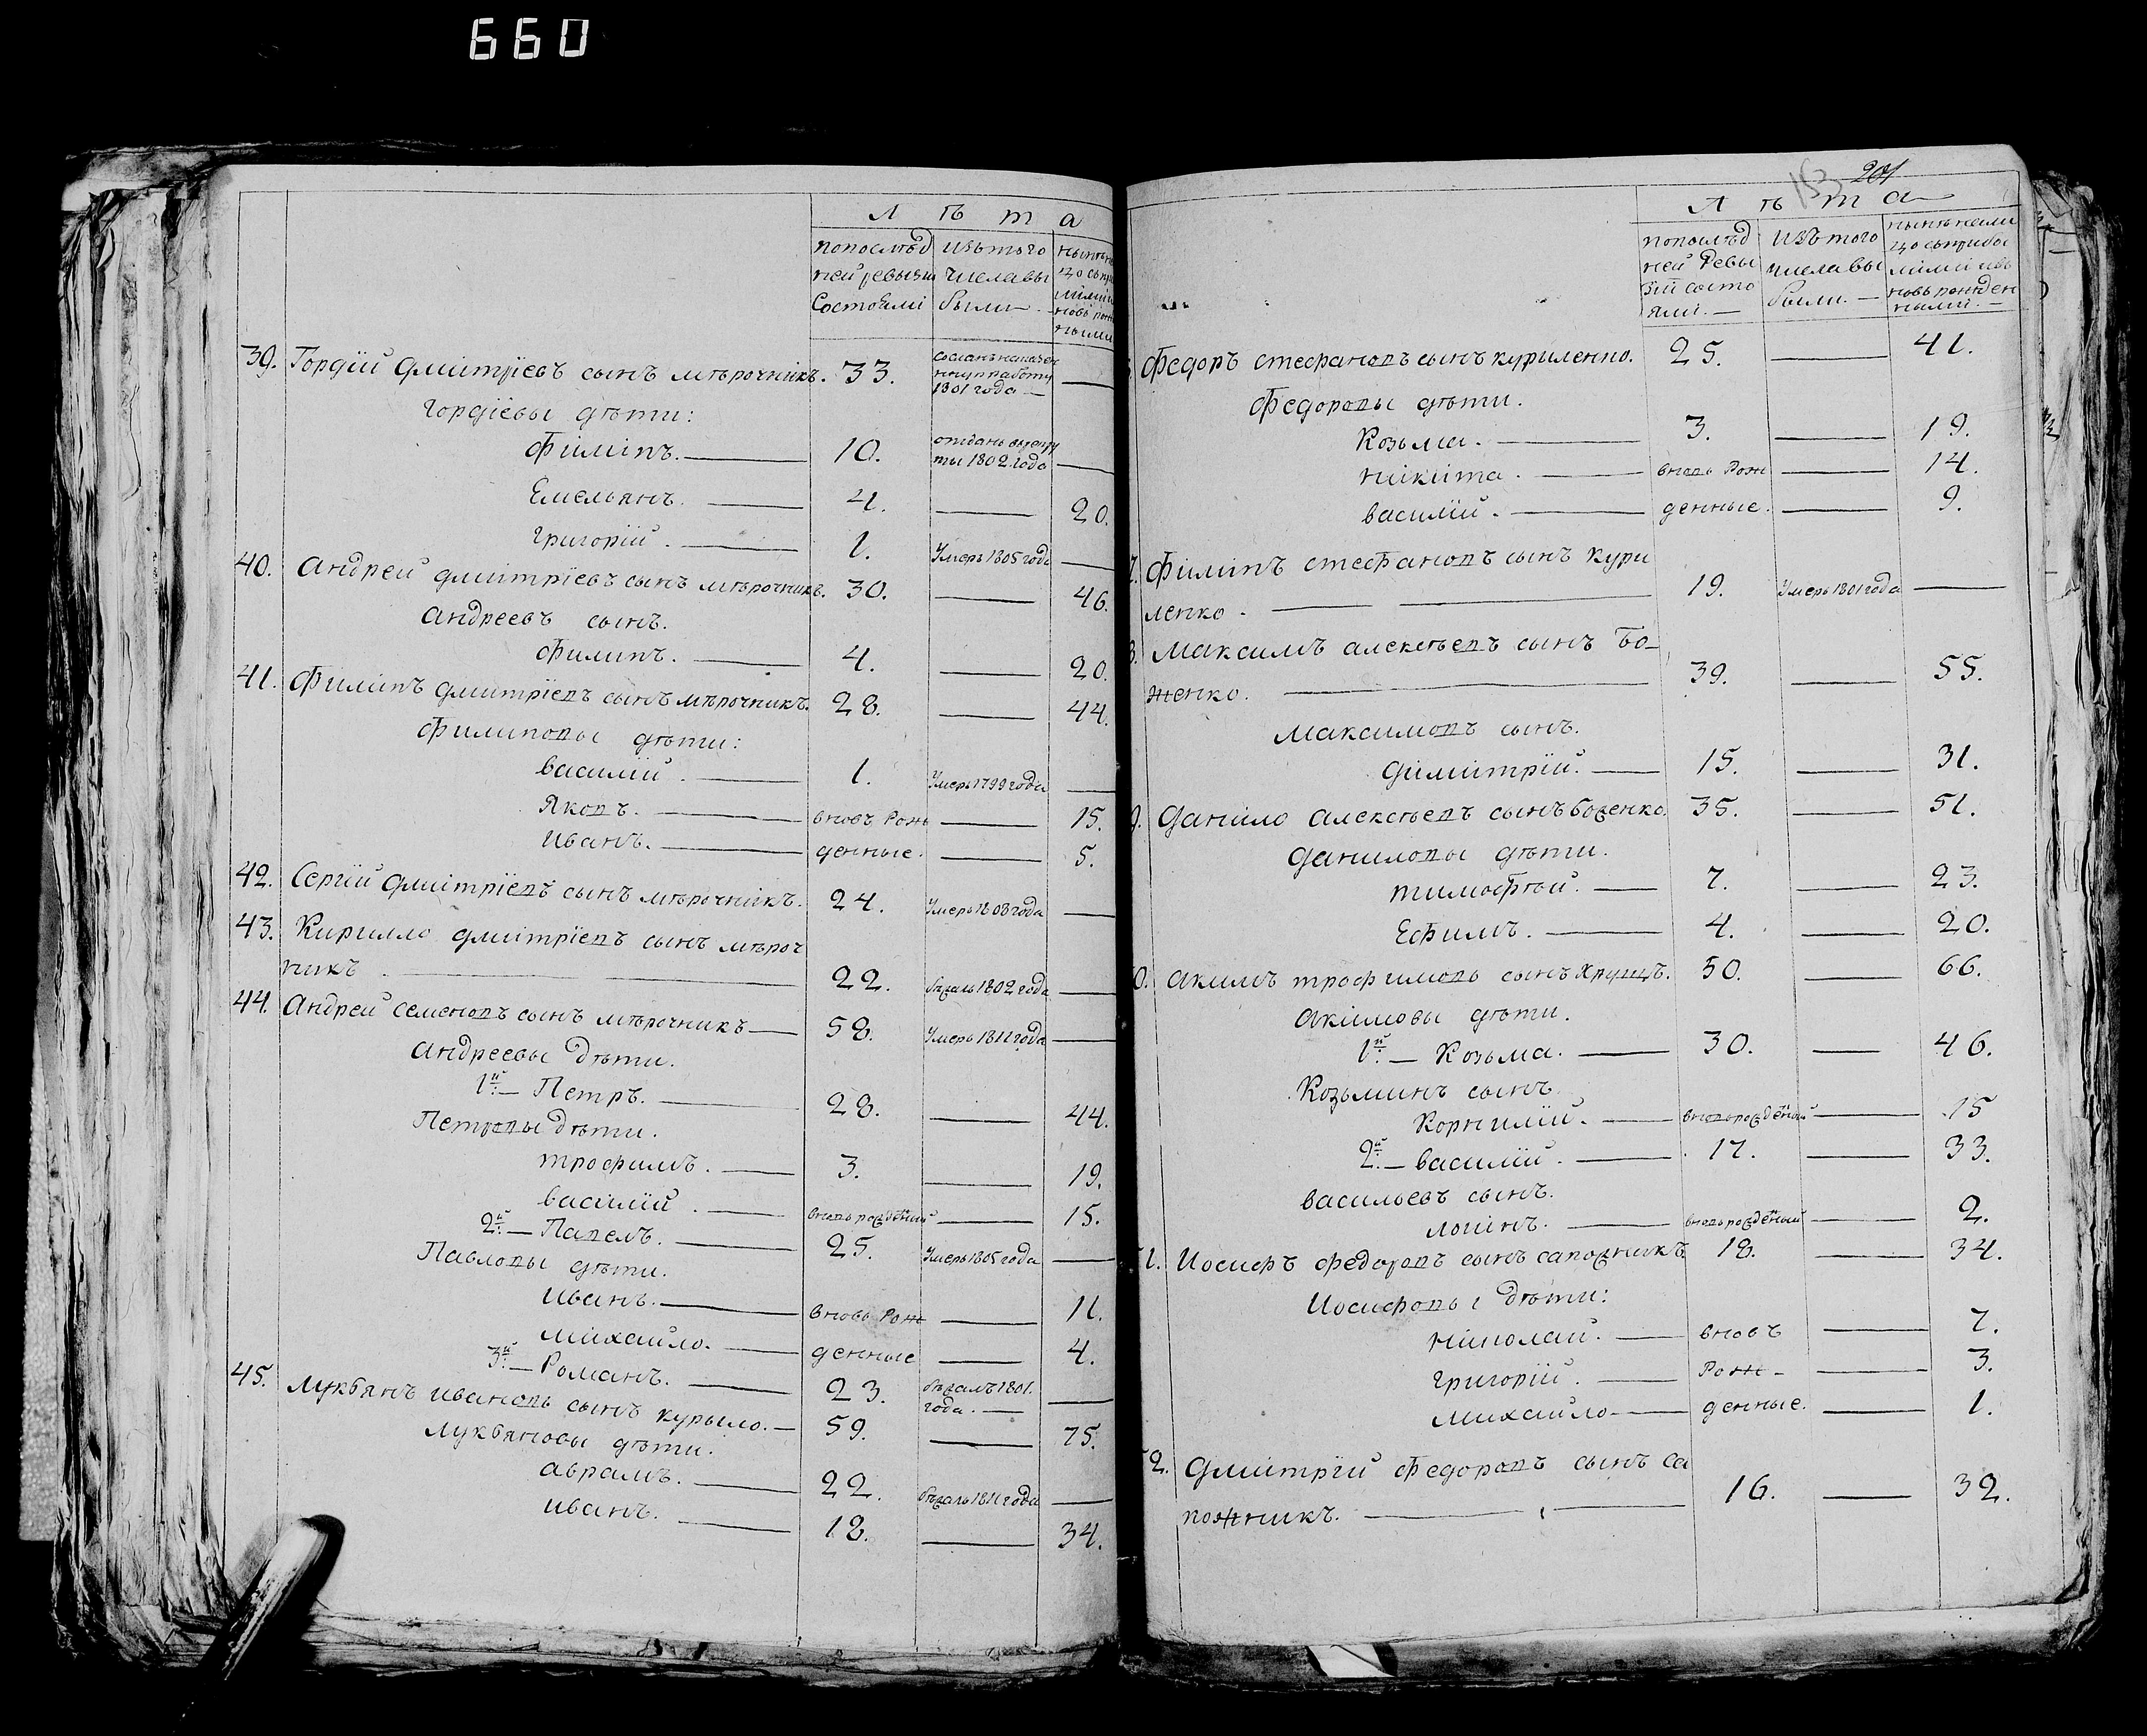 660
л ѣ т а
попослѣд
ней ревызи
состояли
изътого
числавы
были —
39. Гордїй Дмитрїевъ сынъ мѣрочникъ. 33. 1801 года —
Гордїевы дѣти:
Филипъ. 10. отданъ
1802 года
Емельянъ. 4. 20.
Григорїй. 1. Умеръ 1805 года
40. Андрей Дмитрїевъ сынъ мѣрочникъ. 30. 46.
Андреевъ сынъ.
Филипъ. 4. 20.
41. Филипъ Дмитрїевъ сынъ мѣрочникъ. 28. 44.
Филиповы дѣти:
Василїй. 1. Умеръ 1799 года
Яковъ. вновъ Рож 15.
Иванъ. денные. 5.
42. Сергїй Дмитрїевъ сынъ мѣрочникъ. 24. Умеръ 1808 года
43. Кирилло Дмитрїевъ сынъ мѣроч
никъ 22. бѣжалъ 1802 года
44. Андрей Семеновъ сынъ мѣрочникъ — 58. Умеръ 1811 года
Андреевы дѣти.
1й — Петръ. 28. 44.
Петровы дѣти.
Трофимъ. 3. 19.
Василїй. вновьрожденый 15.
2й — Павелъ. 25. Умеръ 1805 года
Павловы дѣти.
Иванъ. вновь Рож 11.
Михайло. денные 4.
3й — Романъ. 23. бѣжалъ 1801.
года. —
45. Лукьянъ Ивановъ сынъ Курыло. — 59. 75.
Лукьяновы дѣти.
Аврамъ. 22. бѣжалъ 1811 года
Иванъ. 18. 34.
153 201
Л ѣ т а
попослѣд
ней Ревы
зїи состо
яли. —
изъ того
числавы
были. —
нынѣ нали
цо съприбы
лыми изъ
новь рожден
ными —
Федоръ Стефановъ сынъ Куриленко. 25. 41.
Федоровы дѣти.
Козьма. 3. 19.
Никита. вновь Рож 14.
Василїй. денные. 9.
7. Филипъ Стефановъ сынъ Кури
ленко. 19. Умеръ 1801 года
8. Максимъ Алексѣевъ сынъ Бо-
женко. 39. 55.
Максимовъ сынъ.
Димитрїй. 15. 31.
9. Данило Алексѣевъ сынъ Боженко. 35. 51.
Даниловы дѣти.
Тимофѣй. 7. 23.
Ефимъ. 4. 20.
0. Акимъ Трофимовъ сынъ Хрущъ. 50. 66.
Акимовы дѣти.
1й — Козьма. 30. 46.
Козьминъ сынъ.
Корнилїй. вновьрожденый 15
2й — Василїй. 17. 33.
Васильевъ сынъ.
Логинъ. вновьрожденый 2.
1. Иосифъ Федоровъ сынъ Сапожникъ 18. 34.
Иосифовы дѣти:
Николай. вновъ 7.
Григорїй. Рож- 3.
Михайло — денные. 1.
2. Дмитрїй Федоровъ сынъ Са
пожникъ. 16. 32.